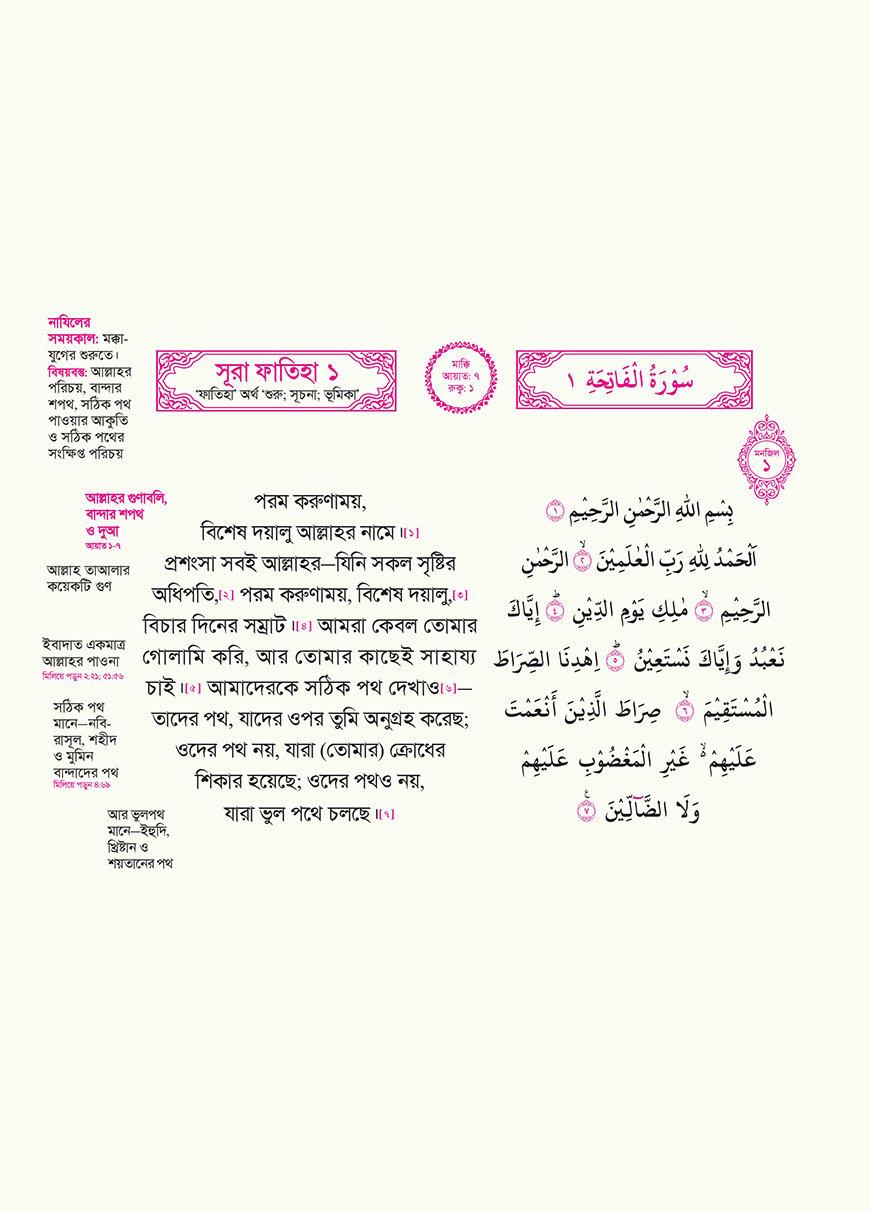 নাযিলের
সময়কাল: মক্কা-
যুগের শুরুতে।
বিষয়বস্তু: আল্লাহর
পরিচয়, বান্দার
শপথ, সঠিক পথ
পাওয়ার আকুতি
ও সঠিক পথের
সংক্ষিপ্ত পরিচয়
সূরা ফাতিহা ১
'ফাতিহা' অর্থ 'শুরু; সূচনা; ভূমিকা'
মাক্কি
আয়াত: ৭
রুকু: ১
سُوْرَةُ الْفَاتِحَةِ ١
মনজিল
১
আল্লাহর গুণাবলি,
বান্দার শপথ
ও দুআ
আয়াত ১-৭
আল্লাহ তাআলার
কয়েকটি গুণ
ইবাদাত একমাত্র
আল্লাহর পাওনা
মিলিয়ে পড়ুন ২:২১; ৫১:৫৬
সঠিক পথ
মানে—নবি-
রাসূল, শহীদ
ও মুমিন
বান্দাদের পথ
মিলিয়ে পড়ুন ৪:৬৯
আর ভুলপথ
মানে—ইহুদি,
খ্রিষ্টান ও
শয়তানের পথ
পরম করুণাময়,
বিশেষ দয়ালু আল্লাহর নামে।[১]
প্রশংসা সবই আল্লাহর—যিনি সকল সৃষ্টির
অধিপতি,[২] পরম করুণাময়, বিশেষ দয়ালু,[৩]
বিচার দিনের সম্রাট।[৪] আমরা কেবল তোমার
গোলামি করি, আর তোমার কাছেই সাহায্য
চাই।[৫] আমাদেরকে সঠিক পথ দেখাও[৬]—
তাদের পথ, যাদের ওপর তুমি অনুগ্রহ করেছ;
ওদের পথ নয়, যারা (তোমার) ক্রোধের
শিকার হয়েছে; ওদের পথও নয়,
যারা ভুল পথে চলছে।[৭]
بِسْمِ اللهِ الرَّحْمٰنِ الرَّحِيْمِ ١
اَلْحَمْدُ لِلّٰهِ رَبِّ الْعٰلَمِيْنَ ۙ٢ الرَّحْمٰنِ
الرَّحِيْمِ ۙ٣ مٰلِكِ يَوْمِ الدِّيْنِ ؕ٤ إِيَّاكَ
نَعْبُدُ وَإِيَّاكَ نَسْتَعِيْنُ ؕ٥ اِهْدِنَا الصِّرَاطَ
الْمُسْتَقِيْمَ ۙ٦ صِرَاطَ الَّذِيْنَ أَنْعَمْتَ
عَلَيْهِمْ ۙ غَيْرِ الْمَغْضُوْبِ عَلَيْهِمْ
وَلَا الضَّآلِّيْنَ ٧